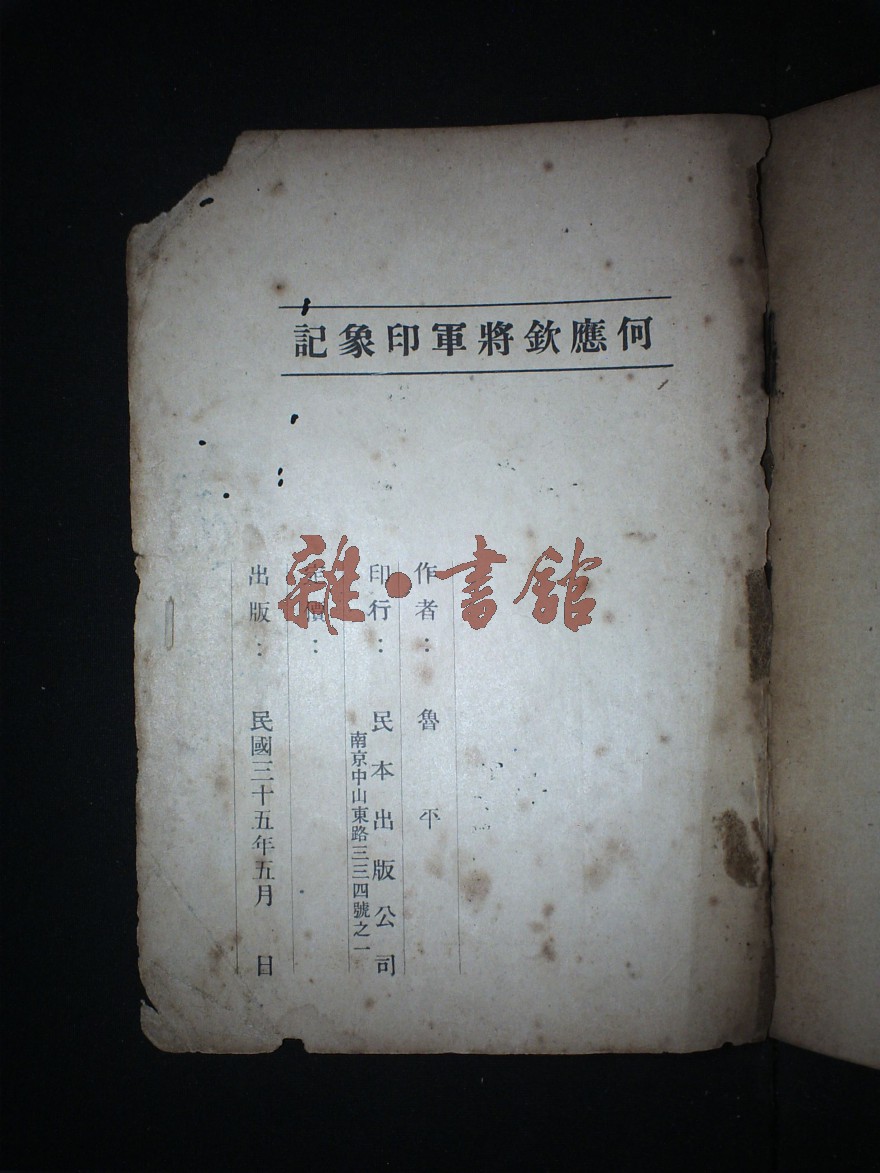 何應欽將軍印象記
作者：魯平
印行：民本出版公司
南京中山東路三三四號之一
定價：
出版：民國三十五年五月　日
雜·書館